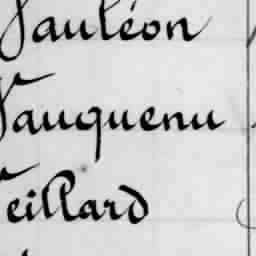 Vauléon
Vauquenu
Veillard